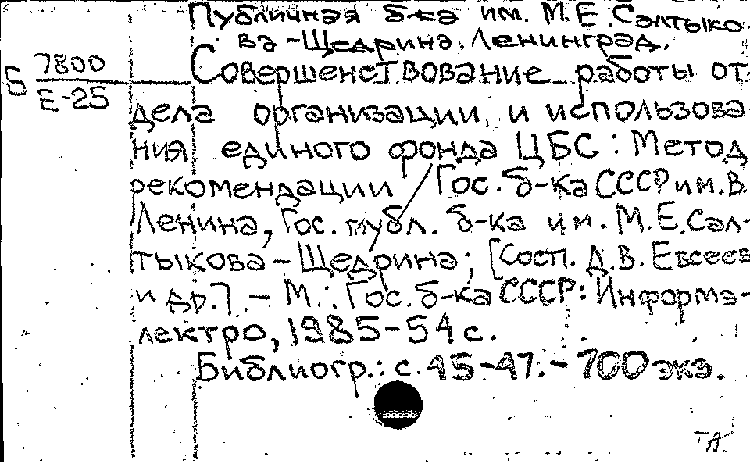 Публичная б-ка им. М.Е. Салтыко-
ва-Щедрина. Ленинград.
Б 7800
Е-25
Совершенствование работы от
дела организации и использова
ния единого фонда ЦБС : Метод
рекомендации / Гос. б-ка СССР им. В.
Ленина, Гос. публ. б-ка им. М.Е. Сал-
тыкова-Щедрина; [Сост. Д.В. Евсеев
и др.]. - М. : Гос. б-ка СССР: Информа-
лектро, 1985-54 с.
Библиогр.: с. 45-47. - 700 экз.